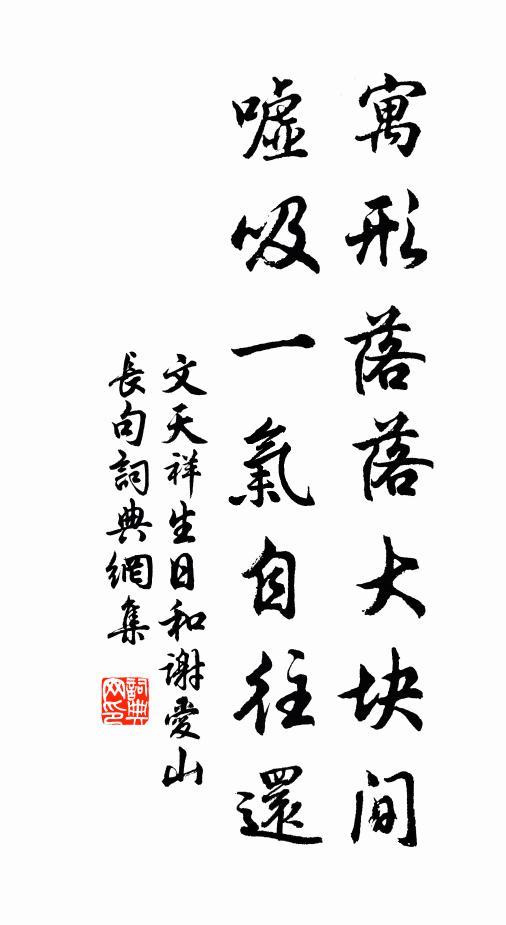 寓形落落大块间
嘘吸一氣自往還
文天祥生日和谢愛山
長句詞典網集
詞典
网印